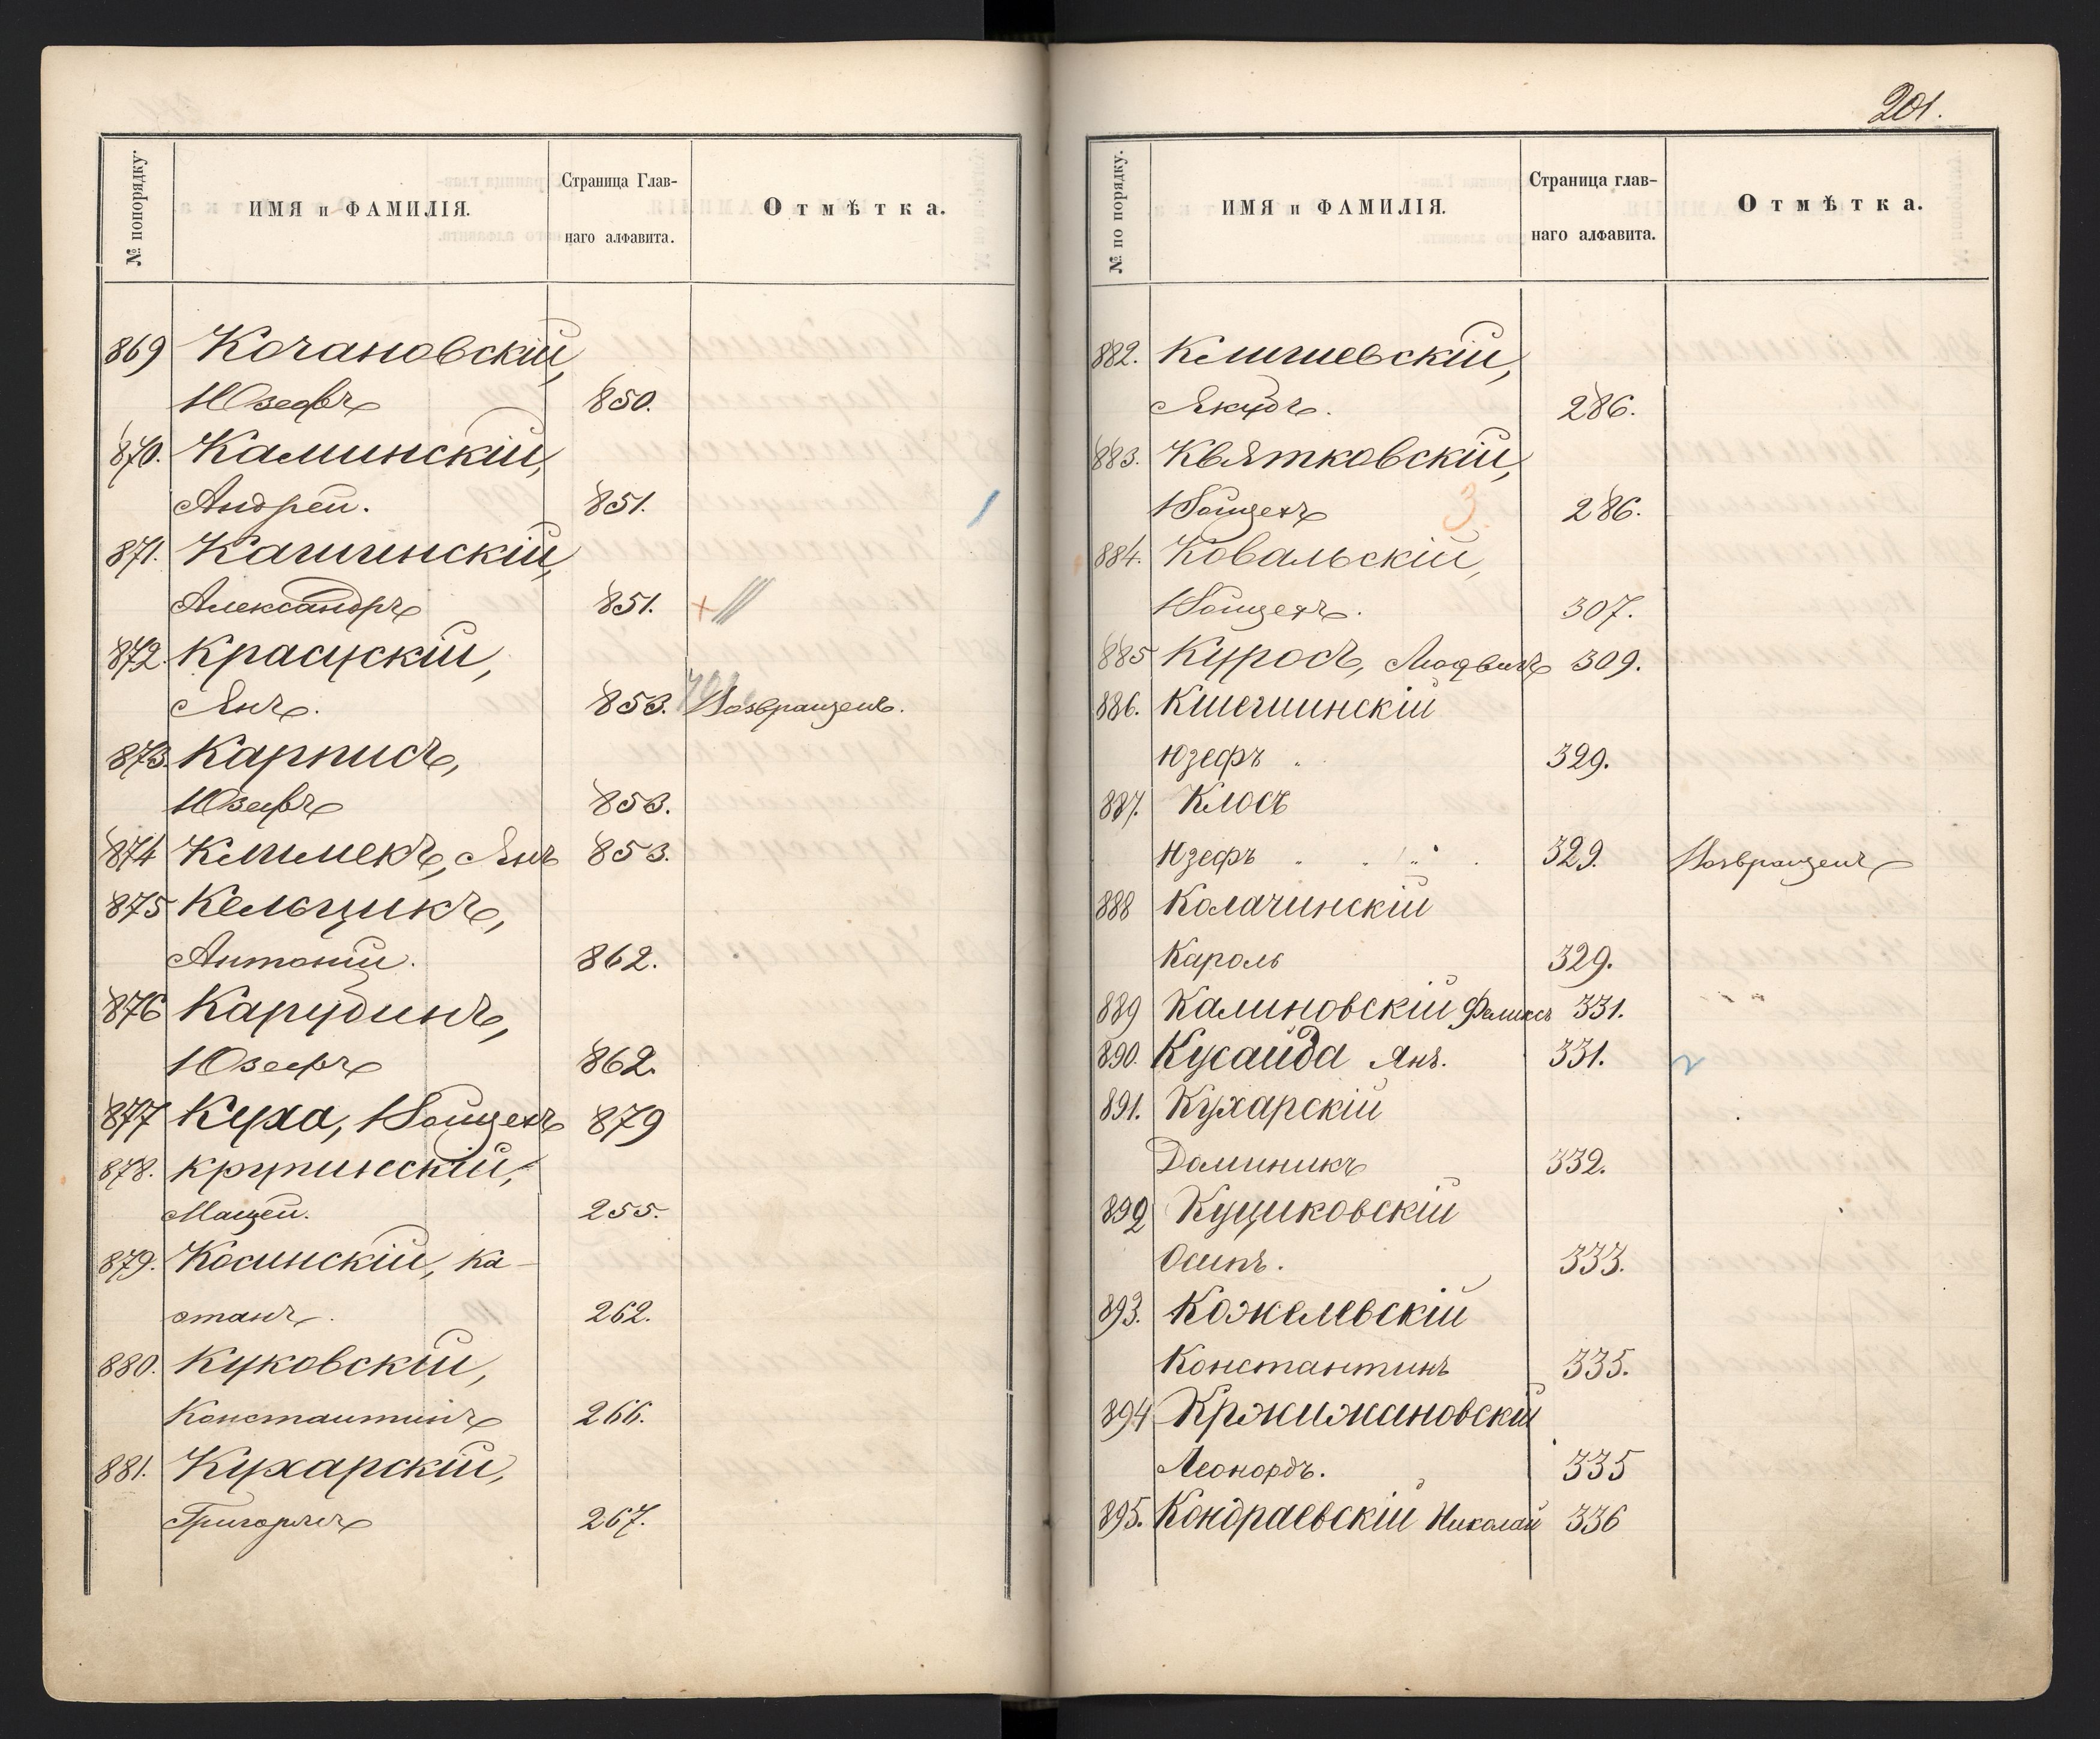 № попорядку.
ИМЯ и ФАМИЛІЯ.
Страница Глав-
наго алфавита.
Отмѣтка.
869 Кочановскій,
Юзефъ 850.
870. Каминскій,
Андрей. 851.
871.
Александръ 851.
872. Красускій,
Янъ. 853. Возвращенъ.
873. Карписъ,
Юзефъ 853.
874 Климекъ, Янъ 853.
875 Кельщикъ,
Антоній. 862.
876 Карубинъ,
Юзефъ 862.
877 Куха, Войцехъ 879
878. Крупинскій,
Мацей. 255.
879. Косинскій, Ка-
этанъ. 262.
880. Куковскій,
Константинъ 266.
881. Кухарскій,
267.
201.
№ по порядку.
ИМЯ и ФАМИЛІЯ.
Страница глав-
наго алфавита.
Отмѣтка.
882.
Якубъ. 286.
883. Квятковскій,
Войцехъ 3. 286.
884. Ковальскій,
Войцехъ. 307.
885 Куросъ, Людвикъ 309.
886.
Юзефъ 329.
887. Клосъ
Юзефъ 329. Возвращенъ
888 Колачинскій
Кароль 329.
889 Калиновскій Феликсъ 331.
890. Кусайда Янъ. 331.
891. Кухарскій
Доминикъ 332.
892 Куциковскій
Осипъ. 333.
893. Кожелевскій
Константинъ 335.
894 Кржижановскій
Леонордъ. 335
895. Кондраевскій Николай 336